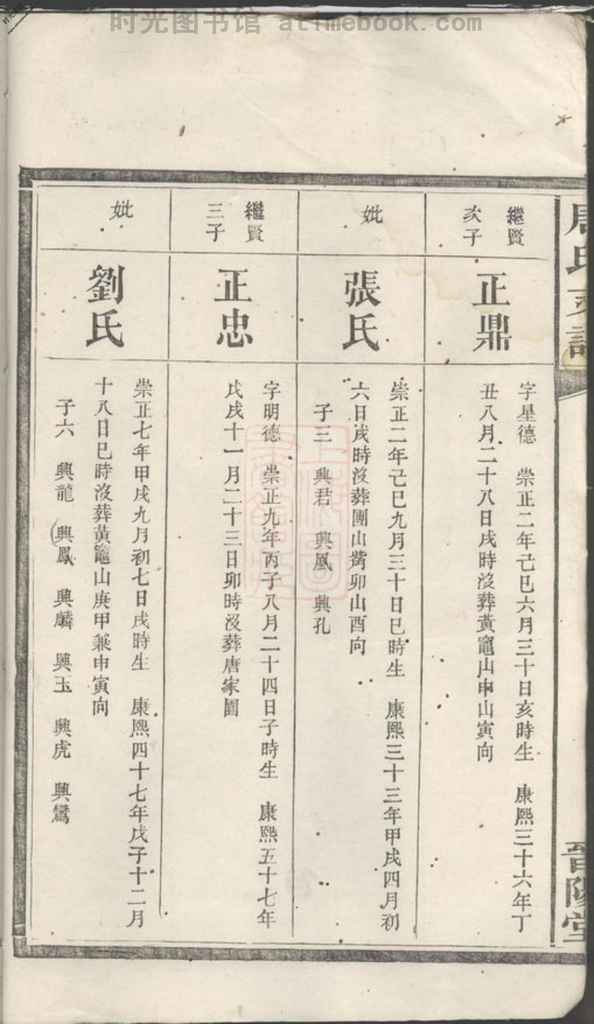 时光图书馆 atimebook.com
周氏支譜
晉陽堂
繼賢
次子
正鼎
字星德 崇正二年己巳六月三十日亥時生 康熙三十六年丁
丑八月二十八日戌時沒葬黃竈山申山寅向
妣
張氏
崇正二年己巳九月三十日巳時生 康熙三十三年甲戌四月初
六日戌時沒葬團山觜卯山酉向
子三 興君 興鳳 興孔
繼賢
三子
正忠
字明德 崇正九年丙子八月二十四日子時生 康熙五十七年
戊戌十一月二十三日卯時沒葬唐家園
妣
劉氏
崇正七年甲戌九月初七日戌時生 康熙四十七年戊子十二月
十八日巳時沒葬黃竈山庚甲兼申寅向
子六 興龍 興鳳 興麟 興玉 興虎 興鸞